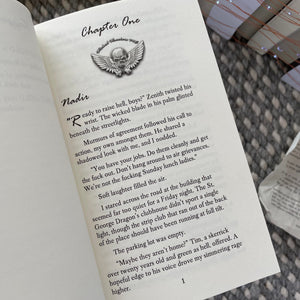 Chapter One
Nadir
"Ready to raise hell, boys?" Zenith twisted his
wrist. The wicked blade in his palm glinted
beneath the streetlights.
Murmurs of agreement followed his call to
action, my own amongst them. He shared a
shadowed look with me, and I nodded.
"You have your jobs. Do them cleanly and get
the fuck out. Don't hang around to air grievances.
We're not the fucking Sunday lunch ladies."
Soft laughter filled the air.
I stared across the road at the building that
seemed far too quiet for a Friday night. The St.
George Dragon's clubhouse didn't sport a single
light, though the strip club that ran out of the back
of the place should have been running at full tilt.
The parking lot was empty.
"Maybe they aren't home!" Tim, a skerrick
over twenty years old and green as hell, offered. A
hopeful edge to his voice drove my simmering rage
higher.
1